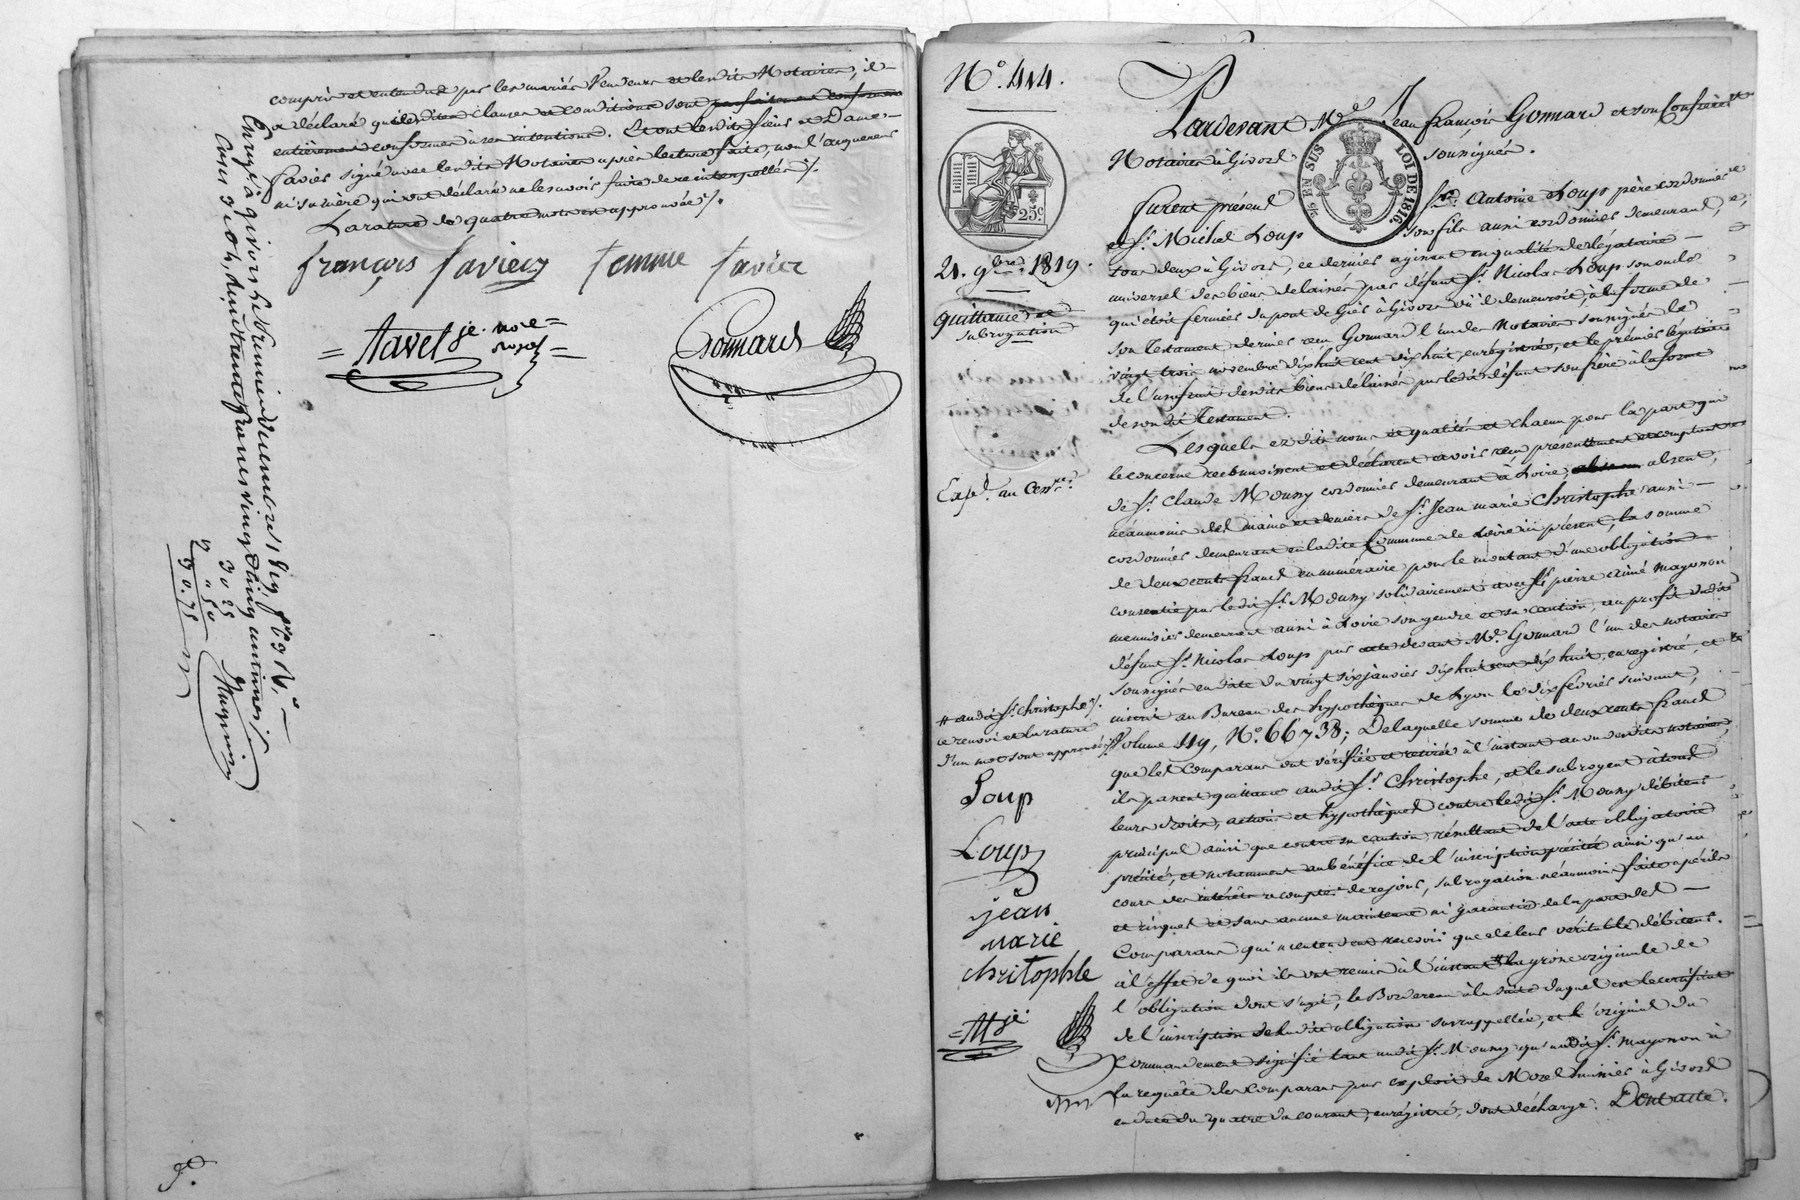 compris et entendue par les mariés Vendeurs et lesdits Notaires, il
a déclaré que lesdites clauses et conditions sont parfaitement conformes
entièrement conformes à ses intentions. Et ont lesdits sieurs et Dames
favier signé avec lesdits Notaires après lecture faite, non l'acquereur
ni sa mère qui ont déclaré ne les avoir faire de ce interpellés ./.
La rature de quatre mots est approuvée ./.
françois favier femme favier
= Favel je. nore =
royal
Gonnard
Enregé à givors le
30 25
" 50
30. 75
N.° 414.
25.c
21. 9bre 1819.
Quittance et
subrogation
Expé. au Cessre.
# audit Sr. Christophe ./.
ce renvoi et la rature
d'un mot sont approuvés ./.
Loup
Loup
jean
marie
chritophle
EN SUS LOI DE 1816
Pardevant Me. Jean françois Gonnard et son Confrère
Notaires à Givors soussignés.
Furent présens Sr. Antoine Loup père cordonnier
et Sr. Michel Loup son fils aussi cordonnier demeurant
tous deux à Givors, ce dernier agissant en qualité de légataire
universel des biens délaissés par défunt Sr. Nicolas Loup son oncle
qui étoit fermier du pont de Giés à Givors où il demeuroit, à la forme de
son Testament dernier reçu Gonnard l'un des Notaires soussignés le
vingt trois novembre dixhuit cent dixhuit, enregistré, et le premier légataire
de l'usufruit desdits biens délaissés par ledit défunt son frère à la forme
de son dit Testament.
Lesquels ezdits noms et qualités et chacun pour la part qui
le concerne reconnoissent et déclarent avoir reçu présentement et comptant
de Sr. Claude Mouny cordonnier demeurant à Loire, absent,
néaumoins des mains et deniers de Sr. Jean marie Christophe aussi
cordonnier demeurant en ladite Commune de Loire ici présent, la somme
de deux cents francs en numéraire pour le montant d'une obligation
consentie par ledit Sr. Mouny solidairement avec Sr. pierre aimé Mayonon
meunier demeurant aussi à Loire son gendre et sa caution, au profit dudit
défunt Sr. Nicolas Loup par acte devant Me. Gonnard l'un des notaires
soussignés en date du vingt six janvier dixhuit cent dix huit, enregistré, et
inscrit au Bureau des hypothèques de Lyon le dix février suivant,
Volume 119, N.° 66738; De laquelle somme de deux cents francs
que les Comparans ont vérifiée et retirée à l'instant au vu desdits notaires,
ils passent quittance audit Sr. Christophe, et le subrogent à tous
leurs droits, actions et hypothèques contre ledit Sr. Mouny débiteur
principal ainsi que contre sa caution, résultant de l'acte obligatoire
précité, et notamment au bénéfice de l'inscription précitée ainsi qu'au
cours des intérêts à compter de ce jour, subrogation néaumoins faite à périls
et risques et sans aucune maintenue ni garantie de la part des
Comparans qui n'entendent recevoir que de leur véritable débiteur.
à l'effet de quoi ils ont remis à l'instant # la grosse originale de
l'obligation dont s'agit, le Bordereau à la suite duquel est le certificat
de l'inscription de ladite obligation surrappellée, et l'original du
Commandement signifié tant audit Sr. Mouny qu'audit Sr. Mayonon à
la requête des Comparans par exploit de Morel huissier à Givors
en date du quatre du courant, enregistré, dont décharge. Dont acte.